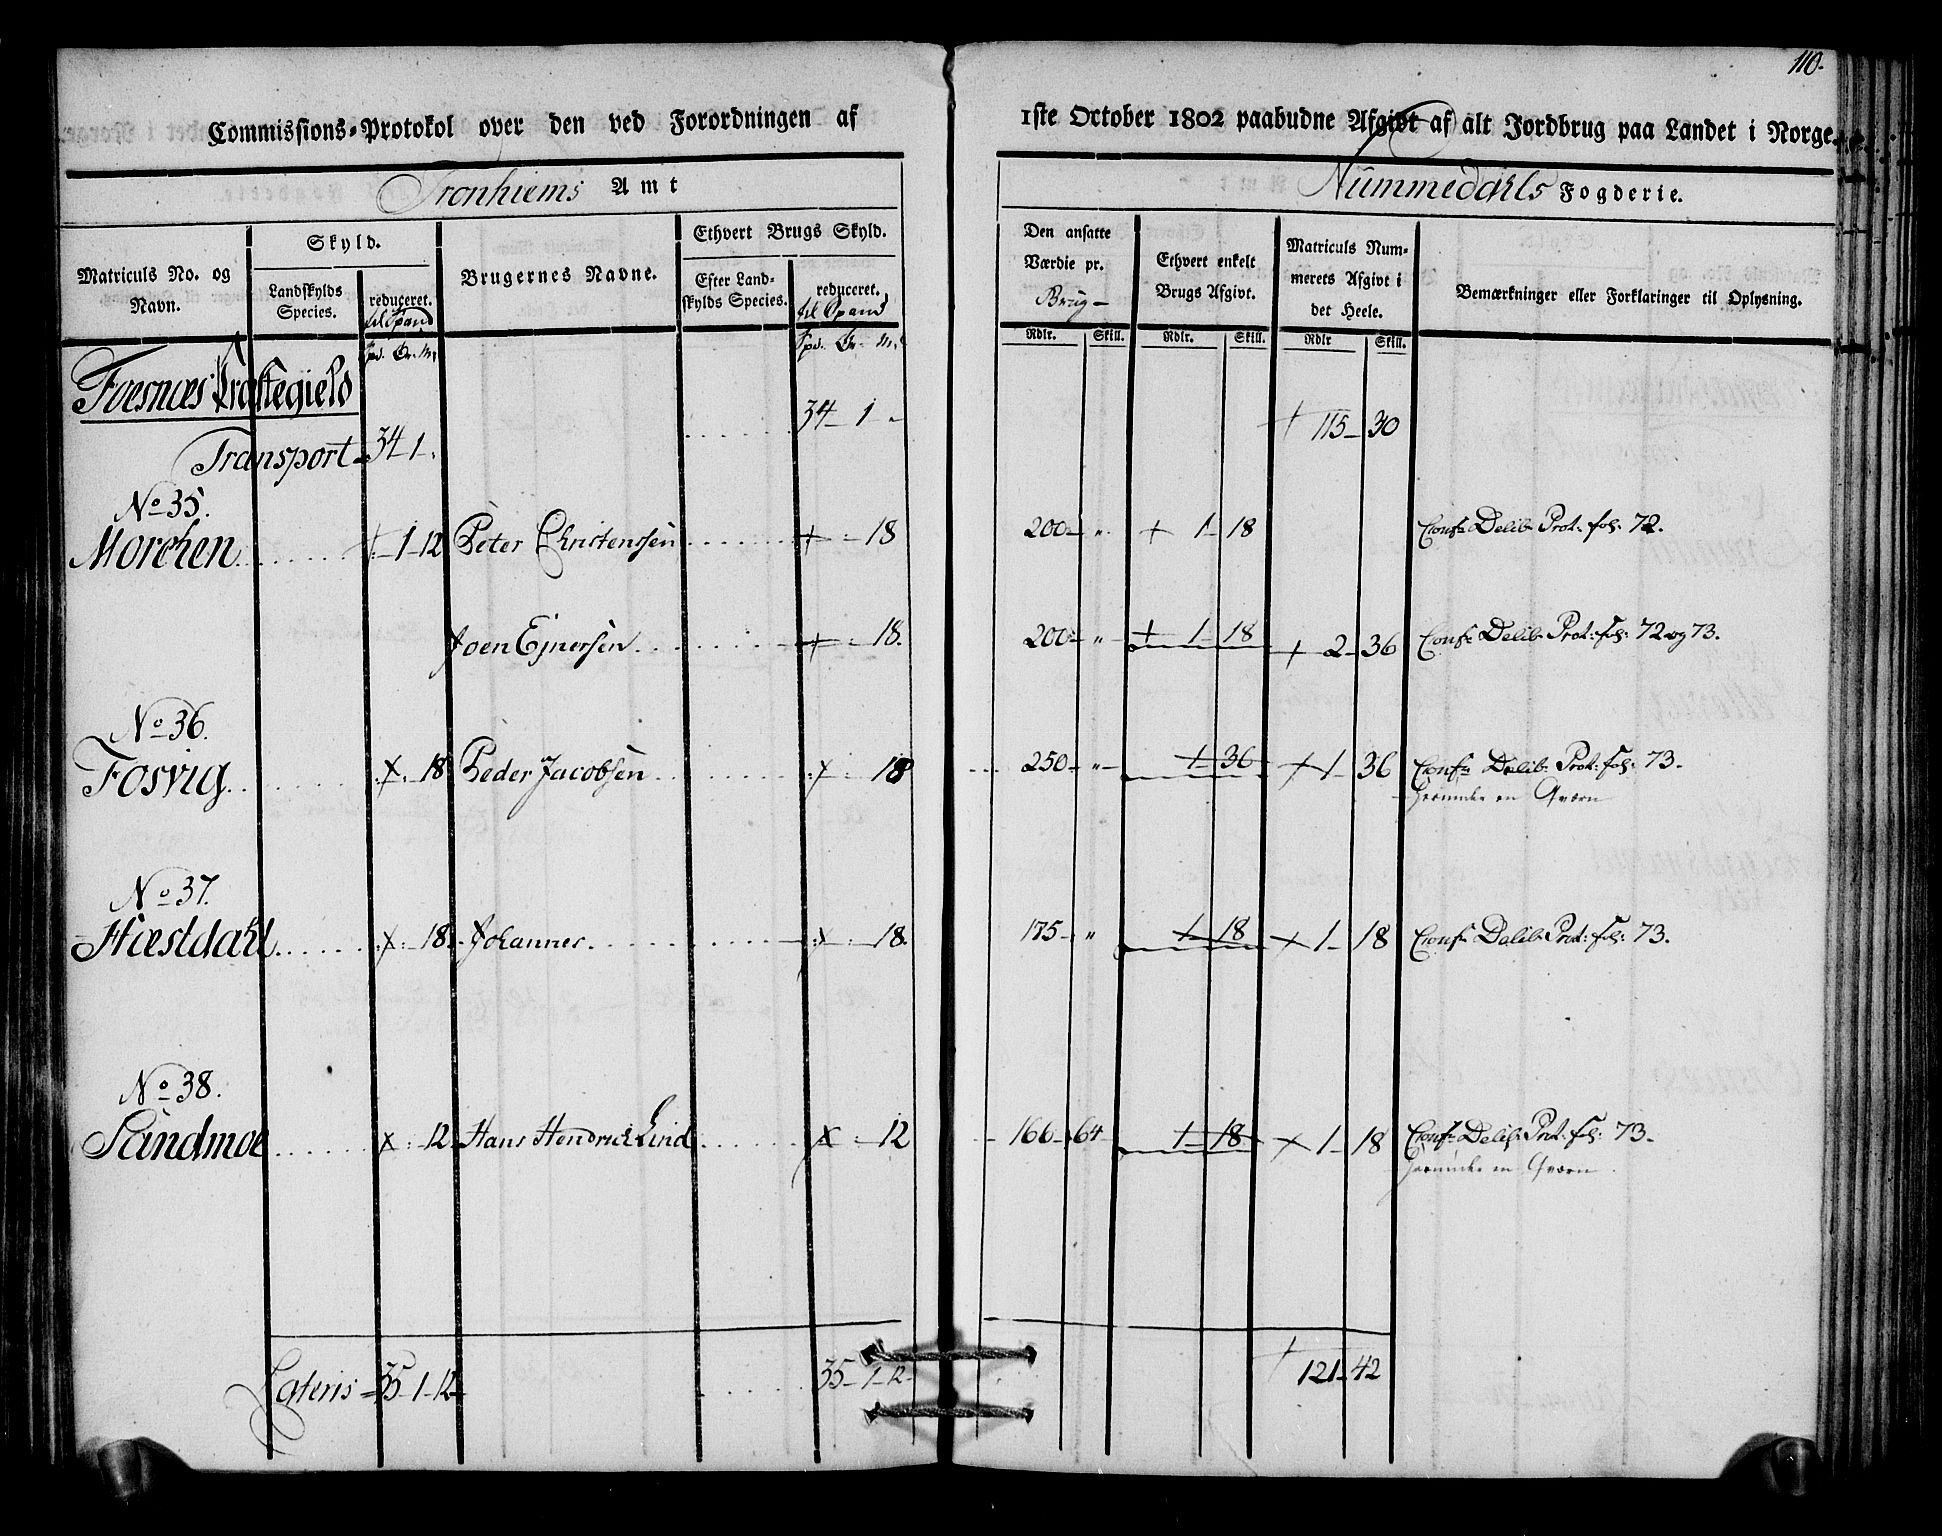 110.
Commissions-Protokol over den ved Forordningen af 1ste October 1802 paabudne Afgivt af alt Jordbrug paa Landet i Norge.
Tronhiems Amt
Nummedahls Fogderie.
Matriculs No. og Navn.
Skyld.
Landskylds Species.
reduceret. til Spand
Brugernes Navne.
Ethvert Brugs Skyld.
Efter Landskylds Species.
reduceret. til Spand
Den ansatte Værdie pr. Brug
Ethvert enkelt Brugs Afgivt.
Matriculs Nummerets Afgivt i det Heele.
Bemærkninger eller Forklaringer til Oplysning.
Spd. Ør. Mk
Spd. Ør. Mk
Rdlr. Skill. Rdlr. Skill. Rdlr Skill.
Foesnæs Præstegield
Transport 34 1 " 34 1 " 115 30
No 35.
Morchen 1 12 Peter Christenssen 18 200 " 1 18 Conf: Delib: Prot: fol: 72.
Joen Ejnersen 18. 200 " 1 18 2 36 Conf: Delib: Prot: fol: 72 og 73.
No 36.
Fosvig 18 Peder Jacobsen 18 250 " 1 36 1 36 Conf: Delib: Prot: fol: 73.
herunder en Qværn
No 37.
Hæstdahl 18 Johannes 18. 175 " 1 18 1 18 Conf: Delib: Prot: fol: 73.
No 38.
Sandmoe 12 Hans Hendrich Lind 12 166 64 1 18 1 18 Conf: Delib: Prot: fol: 73
herunder en Qværn
Lateris 35 1 12 35 1 12 121 42